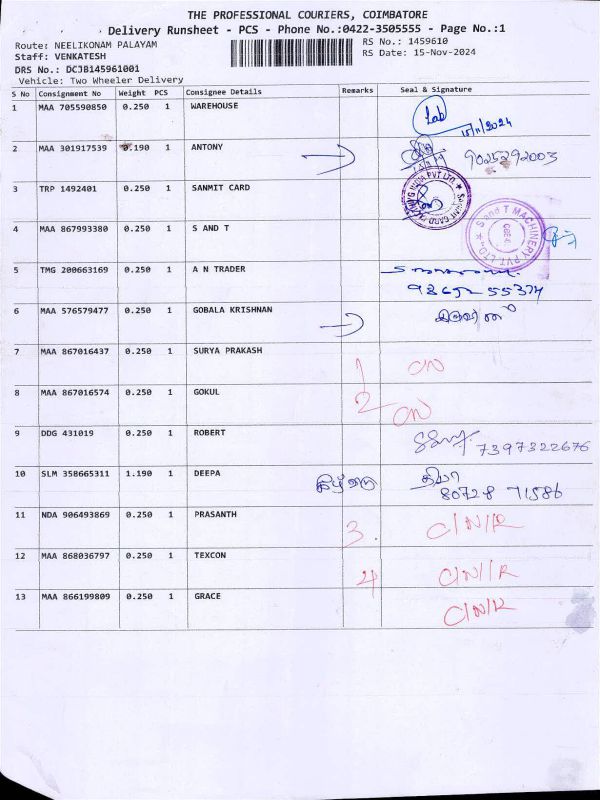 THE PROFESSIONAL COURIERS, COIMBATORE
Delivery Runsheet - PCS - Phone No.:0422-3505555 - Page No.:1
Route: NEELIKONAM PALAYAM
RS No.: 1459610
Staff: VENKATESH
RS Date: 15-Nov-2024
DRS No.: DCJB145961001
Vehicle: Two Wheeler Delivery
S No Consignment No Weight PCS Consignee Details Remarks Seal & Signature
1 MAA 705590850 0.250 1 WAREHOUSE Lab 15/11/2024
2 MAA 301917539 0.190 1 ANTONY 9025292003
3 TRP 1492401 0.250 1 SANMIT CARD
4 MAA 867993380 0.250 1 S AND T S and T MACHINERY PVT. LTD.
5 TMG 200663169 0.250 1 A N TRADER
6 MAA 576579477 0.250 1 GOBALA KRISHNAN
7 MAA 867016437 0.250 1 SURYA PRAKASH 1 CN
8 MAA 867016574 0.250 1 GOKUL 2 CN
9 DDG 431019 0.250 1 ROBERT 7397322676
10 SLM 358665311 1.190 1 DEEPA 80728 71586
11 NDA 906493869 0.250 1 PRASANTH 3. C/N/R
12 MAA 868036797 0.250 1 TEXCON 4 C/N/R
13 MAA 866199809 0.250 1 GRACE C/N/R